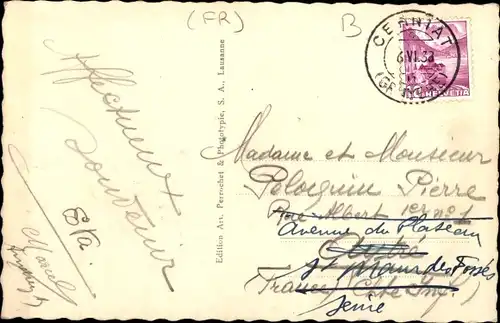 (FR)
B
CERNIAT
6.VI.38
(GRUYÈRE)
HELVETIA
Affectueux
souvenir
Eva.
Marcel
Edition Art. Perrochet & Phototypie, S. A., Lausanne
Madame et Monsieur
Poloquin Pierre
Rue Albert 1er n° 1
Avenue du Plateau
St Maur des Fossés
France
Seine